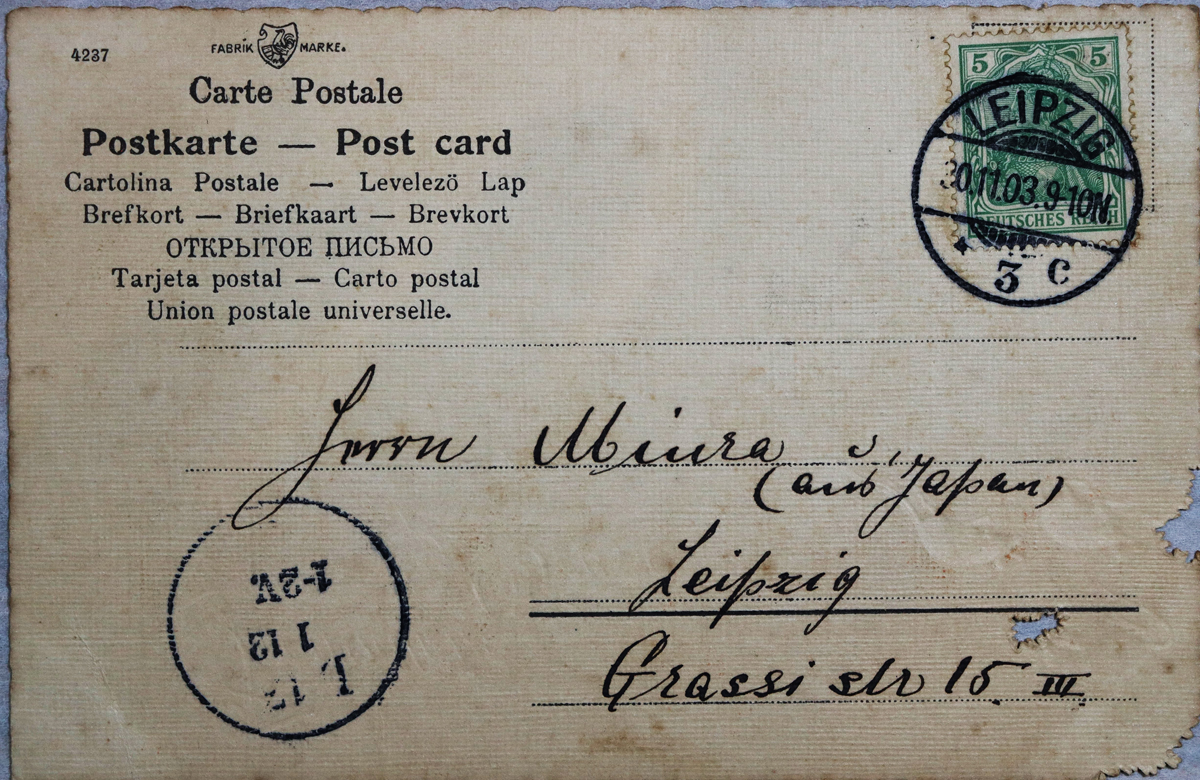 4237
FABRIK MARKE.
Carte Postale
Postkarte — Post card
Cartolina Postale — Levelezö Lap
Brefkort — Briefkaart — Brevkort
ОТКРЫТОЕ ПИСЬМО
Tarjeta postal — Carto postal
Union postale universelle.
5 5
DEUTSCHES REICH
LEIPZIG
30.11.03.9-10N.
* 3 c
Herrn Miura
(aus Japan)
Leipzig
Grassi str 15 III
1-2V.
1 12
L 13